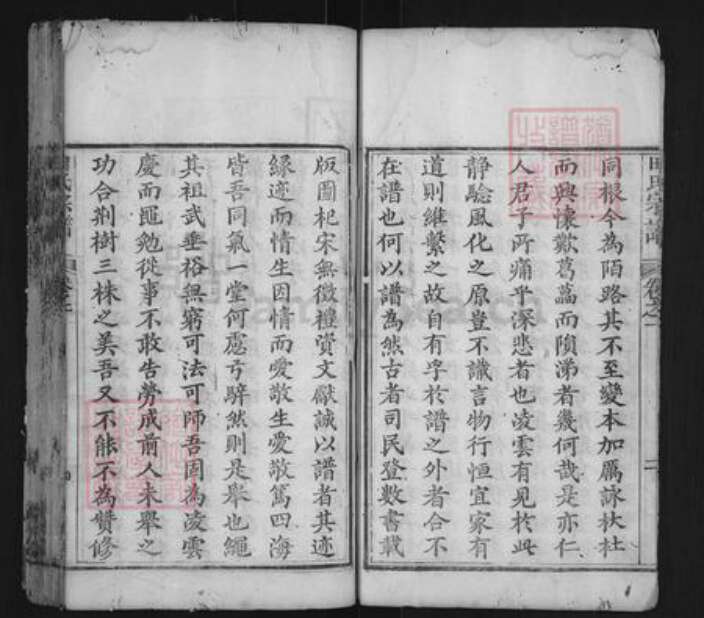 同根今為陌路其不至變本加厲詠杕杜
而興懷歎葛藟而隕涕者幾何哉是亦仁
人君子所痛乎深悲者也凌雲有見於此
靜驗風化之原豈不識言物行恒宜家有
道則維繫之故自有孚於譜之外者合不
在譜也何以譜為然古者司民登數書載
版圖杞宋無徵禮資文獻誠以譜者其迹
緣迹而情生因情而愛敬生愛敬篤四海
皆吾同氣一堂何慮弓騂然則是舉也繩
其祖武垂裕無窮可法可師吾固為凌雲
慶而黽勉從事不敢告勞成前人未舉之
功合荊樹三株之美吾又不能不為贊修
氏宗譜
卷之一